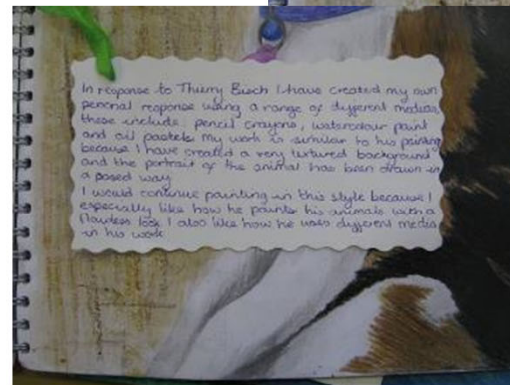 In response to Thierry Bisch I have created my own
personal response using a range of different medias
these include: pencil crayons, watercolour paint
and oil pastels my work is similar to his painting
because I have created a very textured background
and the portrait of the animal has been drawn in
a posed way.
I would continue painting in this style because I
especially like how he paints his animals with a
flawless look I also like how he uses different media
in his work